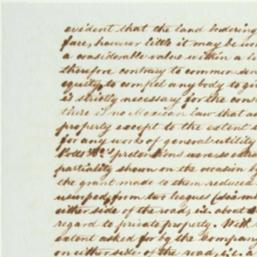 evident that the land bordering
fare, however little it may be
a considerable value within a
therefore contrary to common sense
equity, to compel any body to
is strictly necessary for the cons
there is no Mexican law that
property except to the extent
for any work of general utility
pretensions were so
partiality shown on the occasion by
the grant made to them reduced
usurped, from two leagues
either side of the road, i.e. about
regard to private property. With
extent asked for by the Company
on either side of the road, i.e. a